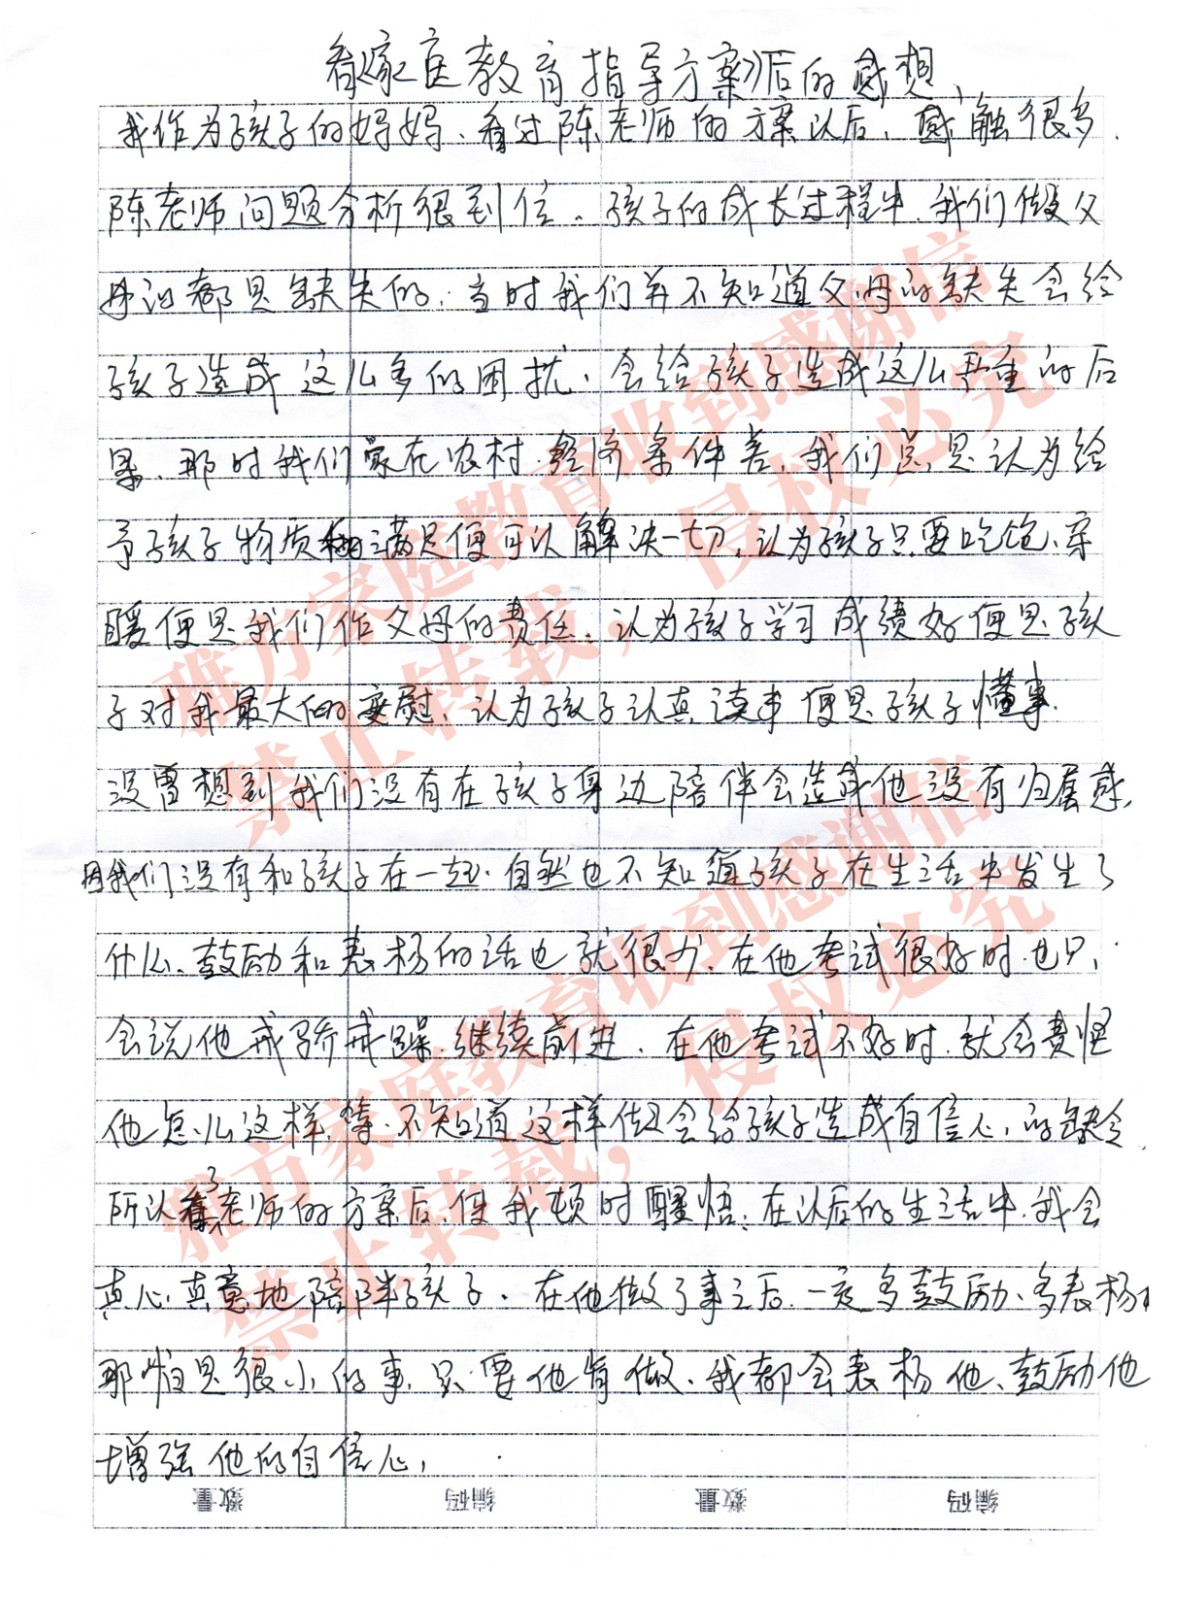 看《家庭教育指导方案》后的感想
我作为孩子的妈妈、看过陈老师的方案以后、感触很多.
陈老师问题分析很到位。孩子的成长过程中、我们做父
母的都是缺失的、当时我们并不知道父母的缺失会给
孩子造成这么多的困扰、会给孩子造成这么严重的后
果、那时我们家在农村、经济条件差、我们总是认为给
予孩子物质的满足便可以解决一切、认为孩子只要吃饱、穿
暖便是我们作父母的责任、认为孩子学习成绩好便是孩
子对我最大的安慰、认为孩子认真读书便是孩子懂事.
没曾想到我们没有在孩子身边陪伴会造成他没有归属感、
因我们没有和孩子在一起、自然也不知道孩子在生活中发生了
什么、鼓励和表扬的话也就很少、在他考试很好时、也只
会说他戒骄戒躁、继续前进、在他考试不好时、就会责怪
他怎么这样、等、不知道这样做会给孩子造成自信心的缺合.
所以看了老师的方案后、使我顿时醒悟、在以后的生活中、我会
真心真意地陪伴孩子、在他做了事之后、一定多鼓励、多表扬、
那怕是很小的事、只要他肯做、我都会表扬他、鼓励他
增强他的自信心、
数量 编码 数量 编码
雅方家庭教育收到感谢信
禁止转载，侵权必究
雅方家庭教育收到感谢信
禁止转载，侵权必究